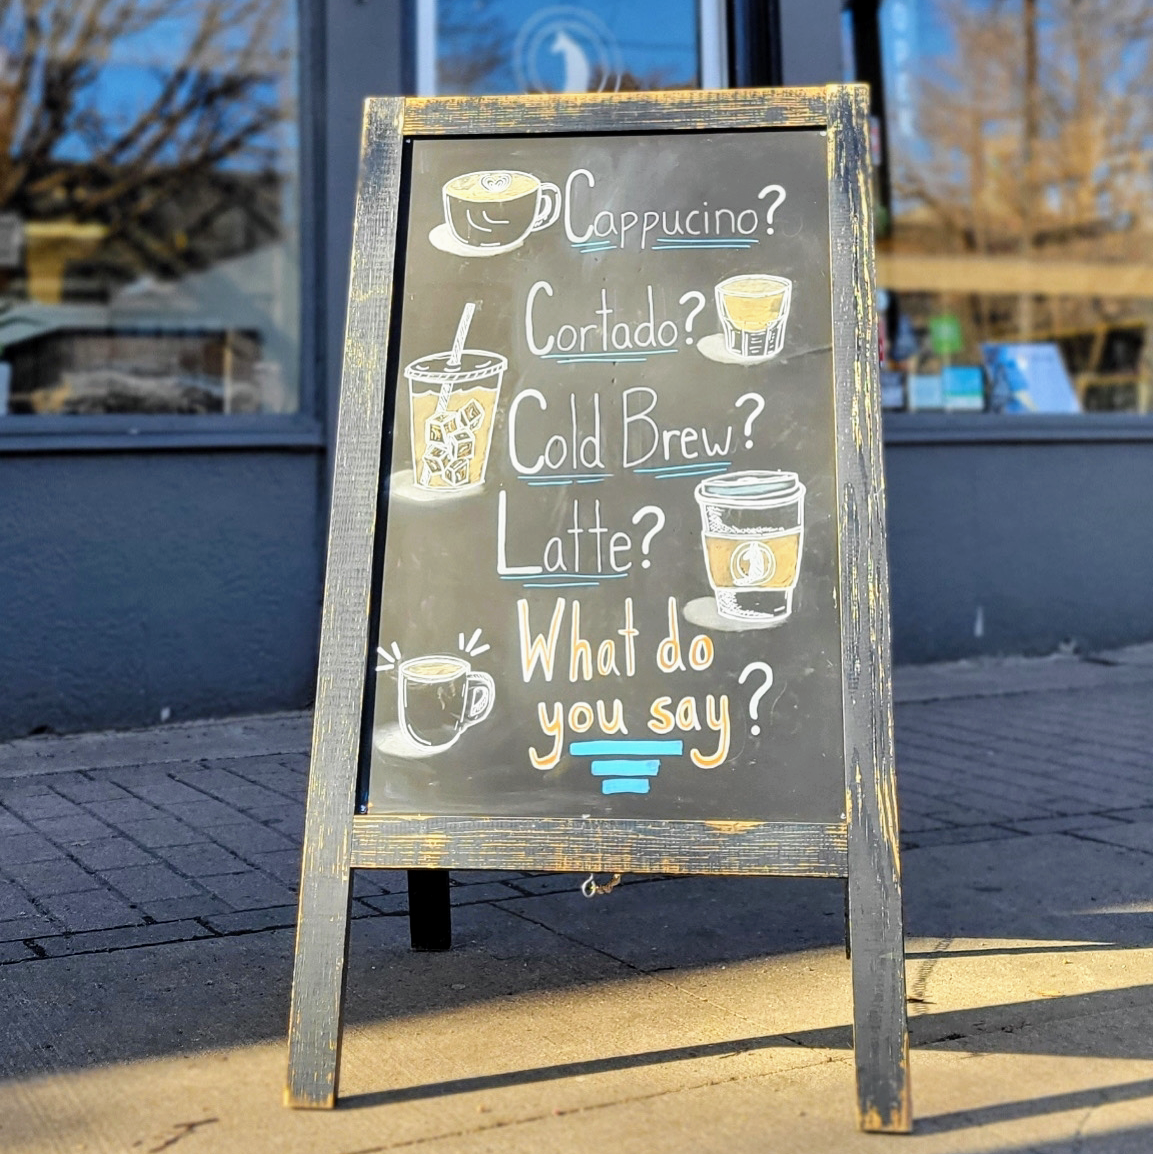 Cappucino?
Cortado?
Cold Brew?
Latte?
What do
you say?